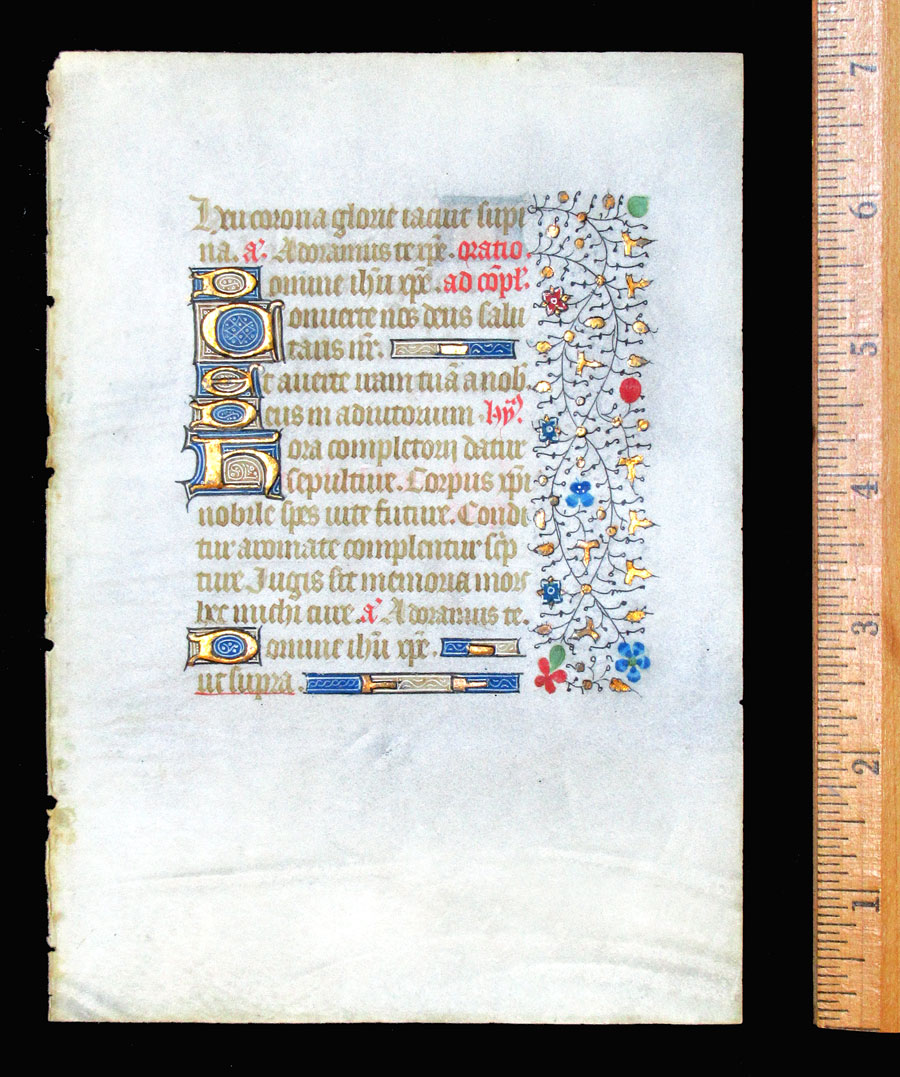 Heu corona glorie iacuit supi
na. a᷒. Adoramus te xp̄e. oratio.
Domine ihū xp̄e. ad cōpl᷒.
Conuerte nos deus salu
taris nr̄.
Et auerte iram tuā a nob᷒.
Deus in adiutorium hy᷒.
Hora completorij datur
sepulture. Corpus xp̄i
nobile spes uite future. Condi
tur aromate complentur sc̄p
ture Jugis sit memoria mor
hec michi cure. a᷒ Adoramus te.
Domine ihū xp̄e.
ut supra.
7
6
5
4
3
2
1